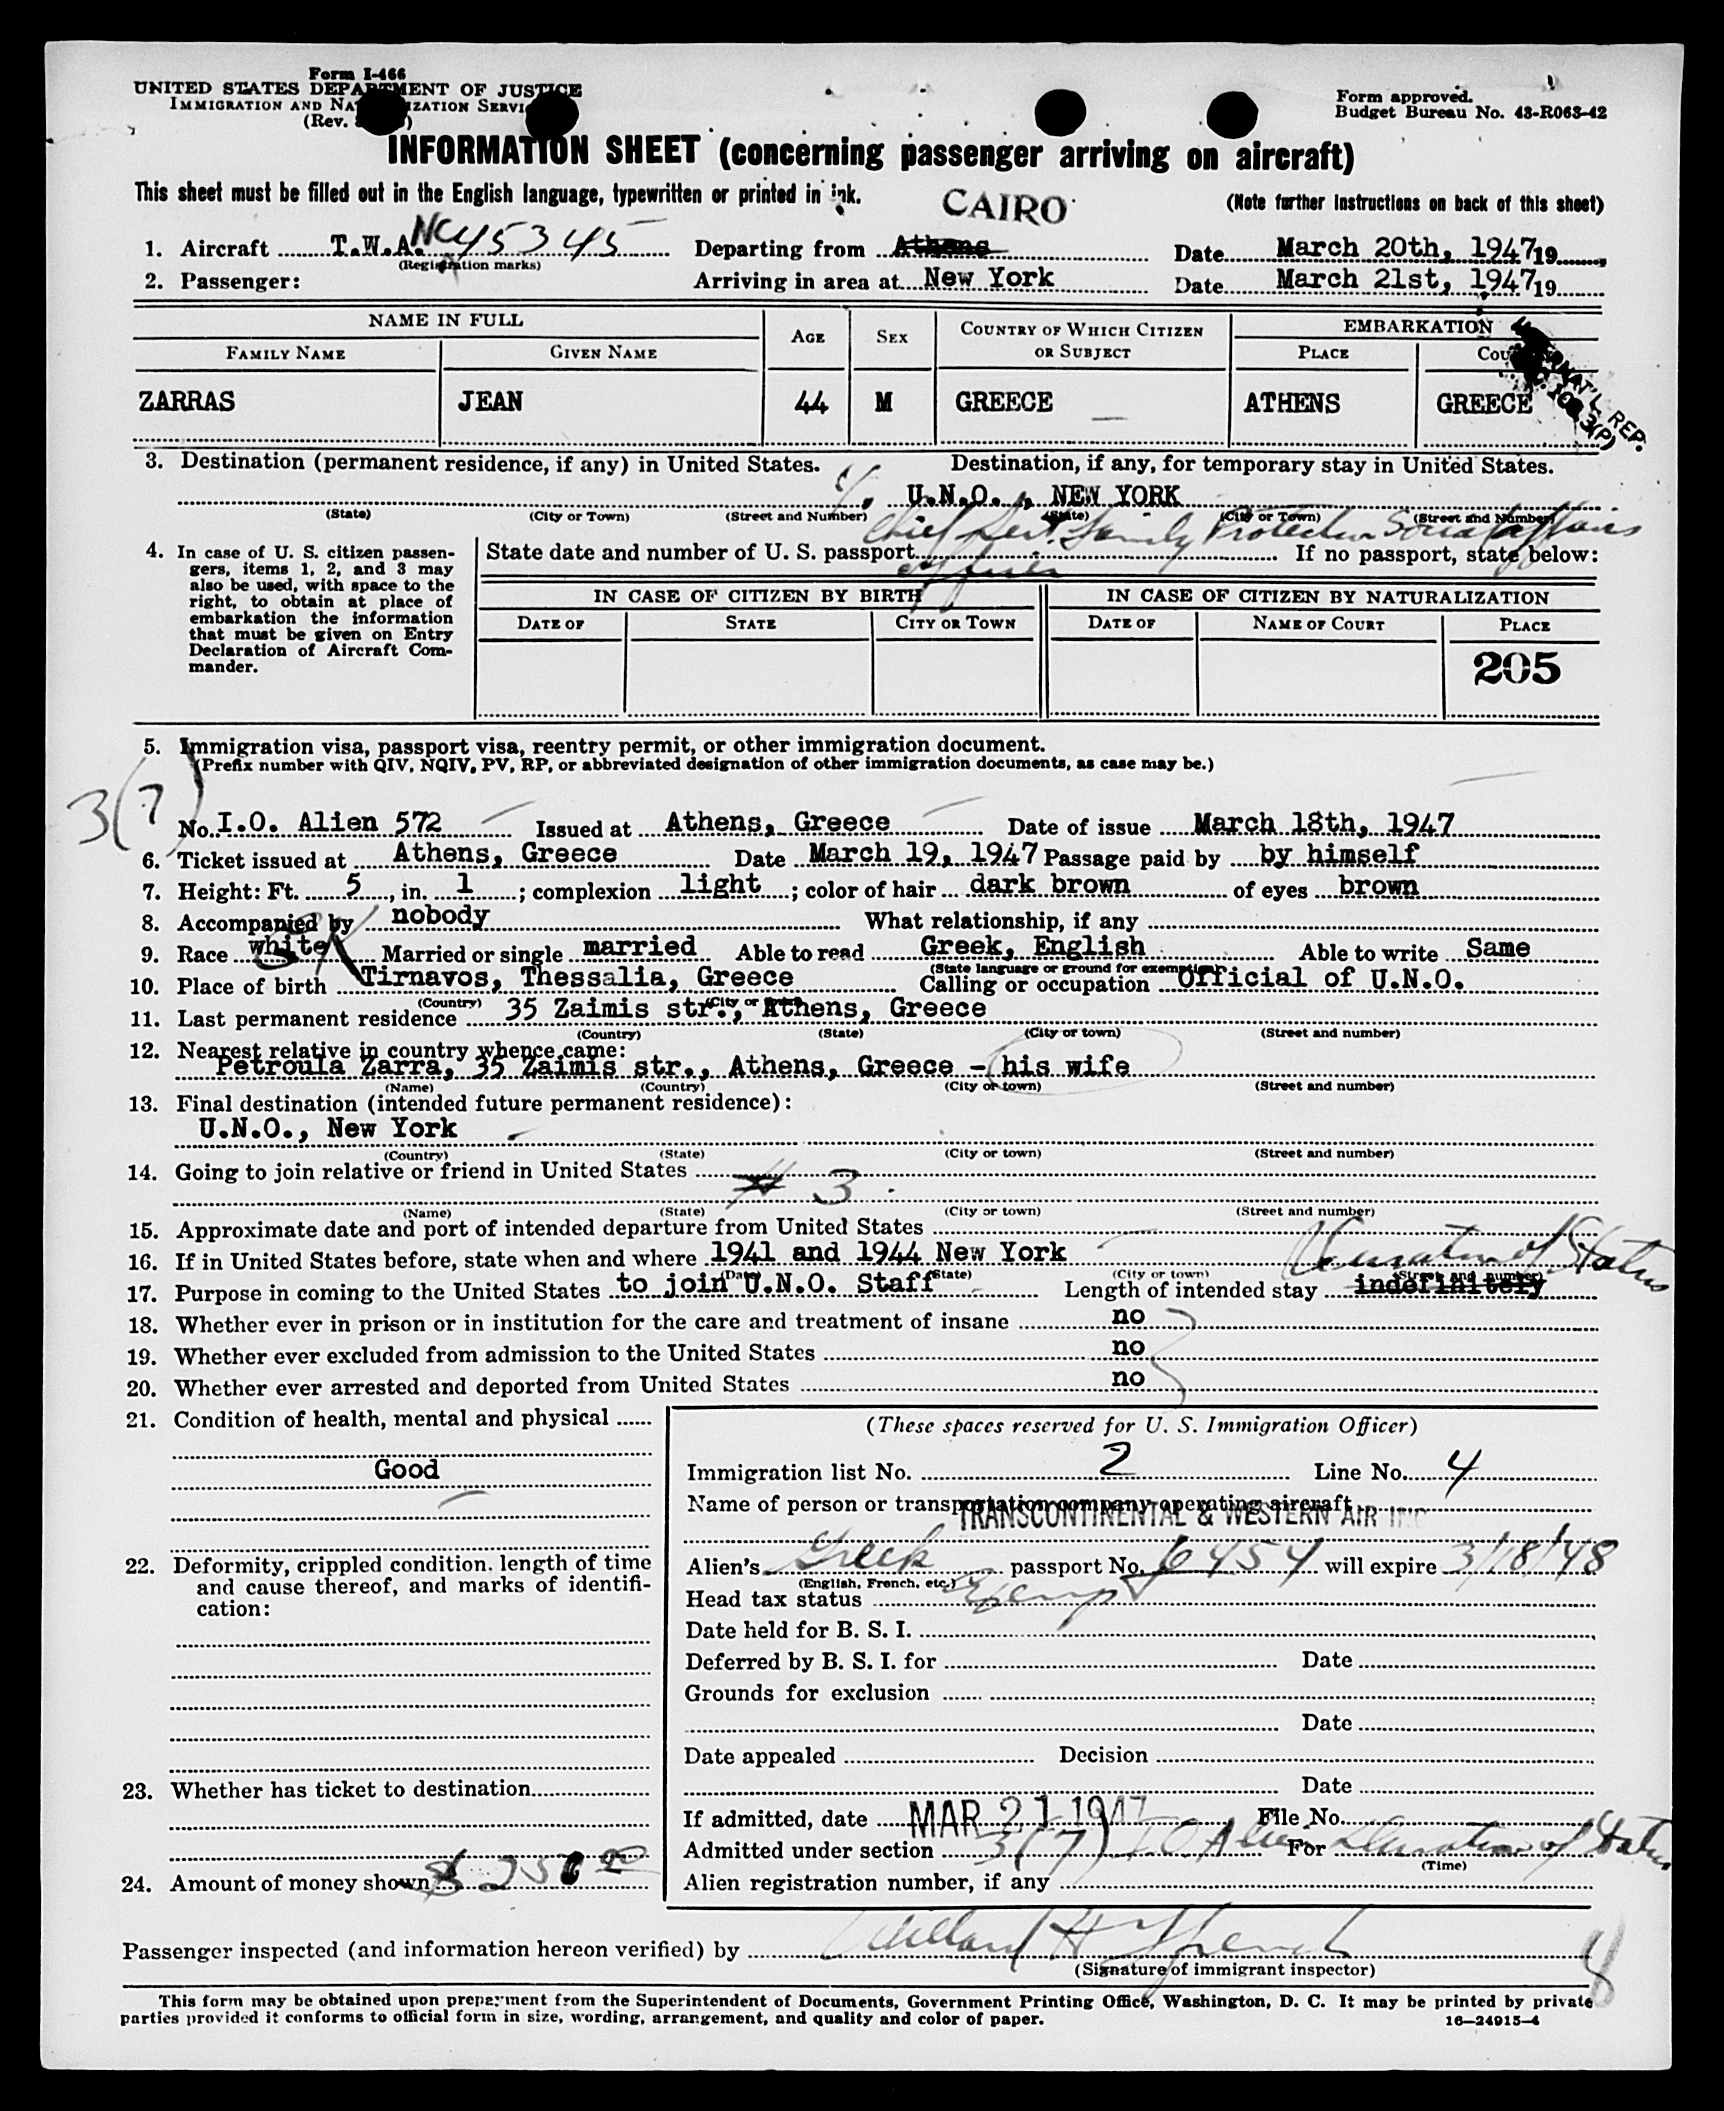 Form I-466
UNITED STATES DEPARTMENT OF JUSTICE
IMMIGRATION AND NATURALIZATION SERVICE
(Rev.
Form approved.
Budget Bureau No. 43-R063-42
INFORMATION SHEET (concerning passenger arriving on aircraft)
This sheet must be filled out in the English language, typewritten or printed in ink.
CAIRO
(Note further instructions on back of this sheet)
1. Aircraft T.W.A. NC 45345 Departing from Athens Date March 20th, 1947 19
(Registration marks)
2. Passenger: Arriving in area at New York Date March 21st, 1947 19
NAME IN FULL AGE SEX COUNTRY OF WHICH CITIZEN OR SUBJECT EMBARKATION
FAMILY NAME GIVEN NAME PLACE COUNTRY
INTERNAT'L REP.
3(P)
ZARRAS JEAN 44 M GREECE ATHENS GREECE
3. Destination (permanent residence, if any) in United States. Destination, if any, for temporary stay in United States.
U.N.O., NEW YORK
(State) (City or Town) (Street and Number) (State) (City or Town) (Street and Number)
Chief Family Protection Social Affairs
4. In case of U. S. citizen passengers, items 1, 2, and 3 may also be used, with space to the right, to obtain at place of embarkation the information that must be given on Entry Declaration of Aircraft Commander.
State date and number of U. S. passport If no passport, state below:
IN CASE OF CITIZEN BY BIRTH IN CASE OF CITIZEN BY NATURALIZATION
DATE OF STATE CITY OR TOWN DATE OF NAME OF COURT PLACE
205
5. Immigration visa, passport visa, reentry permit, or other immigration document.
(Prefix number with QIV, NQIV, PV, RP, or abbreviated designation of other immigration documents, as case may be.)
3(7)
No. I.O. Alien 572 Issued at Athens, Greece Date of issue March 18th, 1947
6. Ticket issued at Athens, Greece Date March 19, 1947 Passage paid by by himself
7. Height: Ft. 5, in. 1; complexion light; color of hair dark brown of eyes brown
8. Accompanied by nobody What relationship, if any
9. Race white Married or single married Able to read Greek, English Able to write Same
(State language or ground for exemption)
10. Place of birth Tirnavos, Thessalia, Greece Calling or occupation Official of U.N.O.
(Country) (City or town)
11. Last permanent residence 35 Zaimis str., Athens, Greece
(Country) (State) (City or town) (Street and number)
12. Nearest relative in country whence came:
Petroula Zarra, 35 Zaimis str., Athens, Greece - his wife
(Name) (Country) (City or town) (Street and number)
13. Final destination (intended future permanent residence):
U.N.O., New York
(Country) (State) (City or town) (Street and number)
14. Going to join relative or friend in United States
# 3
(Name) (State) (City or town) (Street and number)
15. Approximate date and port of intended departure from United States
16. If in United States before, state when and where 1941 and 1944 New York
Duration of Status
(Date) (State) (City or town) (Street and number)
17. Purpose in coming to the United States to join U.N.O. Staff Length of intended stay indefinitely
18. Whether ever in prison or in institution for the care and treatment of insane no
19. Whether ever excluded from admission to the United States no
20. Whether ever arrested and deported from United States no
21. Condition of health, mental and physical
Good
22. Deformity, crippled condition, length of time and cause thereof, and marks of identification:
23. Whether has ticket to destination
24. Amount of money shown $ 250 00
(These spaces reserved for U. S. Immigration Officer)
Immigration list No. 2 Line No. 4
Name of person or transportation company operating aircraft
TRANSCONTINENTAL & WESTERN AIR INC
Alien's Greek passport No. 6454 will expire 3/18/48
(English, French, etc.)
Head tax status Exempt
Date held for B. S. I.
Deferred by B. S. I. for Date
Grounds for exclusion
Date
Date appealed Decision
Date
If admitted, date MAR 21 1947 File No.
Admitted under section 3(7) I.O. Alien For Duration of Status
(Time)
Alien registration number, if any
Passenger inspected (and information hereon verified) by Willard H.
(Signature of immigrant inspector)
This form may be obtained upon prepayment from the Superintendent of Documents, Government Printing Office, Washington, D. C. It may be printed by private
parties provided it conforms to official form in size, wording, arrangement, and quality and color of paper.
16—24915-4